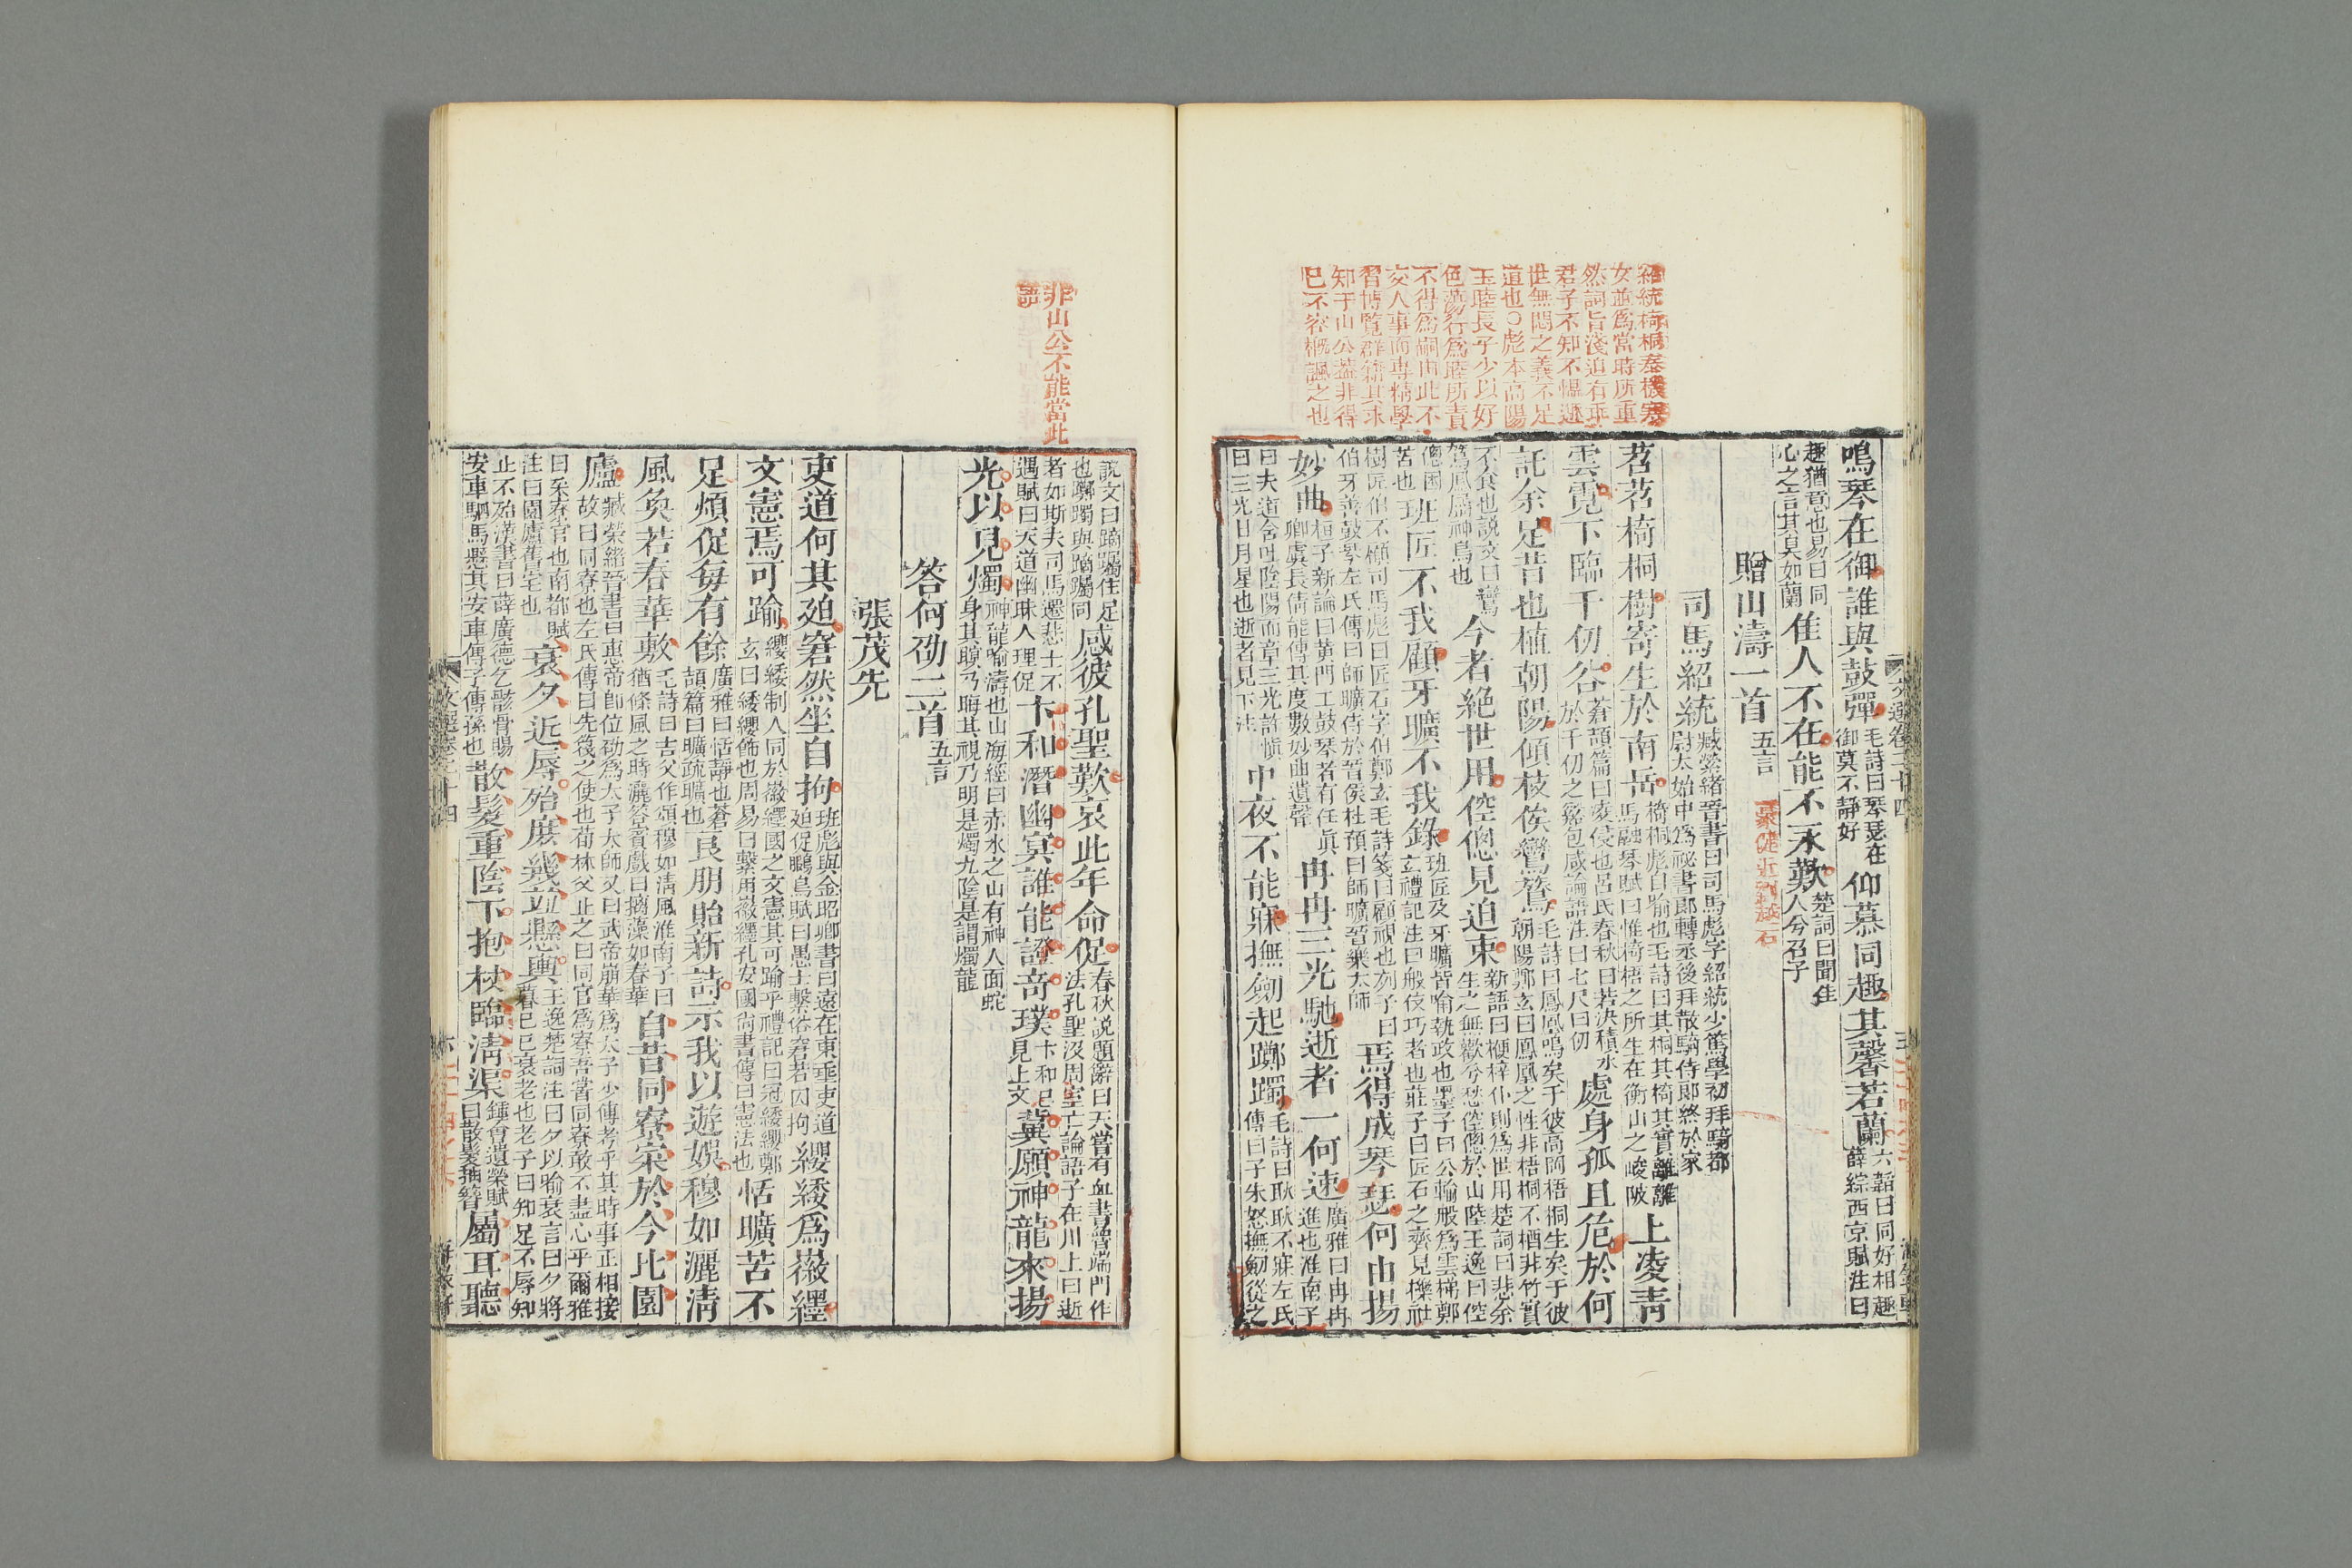 紹統椅桐秦機寒
女並爲當時所重
然詞旨淺迫有乖
君子不知不慍遯
世無悶之義不足
道也○彪本高陽
王睦長子少以好
色薄行爲睦所責
不得爲嗣由此不
交人事而專精學
習博覽群籍其求
知于山公蓋非得
已不容概諷之也
鳴琴在御誰與鼓彈毛詩曰琴瑟在御莫不靜好仰慕同趣其馨若蘭六韜曰同好相趣薛綜西京賦注曰
趣猶意也易曰同心之言其臭如蘭佳人不在能不永歎楚詞曰聞佳人兮召予
贈山濤一首五言 豪健近劉越石
司馬紹統臧榮緒晉書曰司馬彪字紹統少篤學初拜騎都尉太始中爲祕書郎轉丞後拜散騎侍郎終於家
苕苕椅桐樹寄生於南岳椅桐彪自喻也毛詩曰其桐其椅其實離離馬融琴賦曰惟椅梧之所生在衡山之峻陂上凌青
雲霓下臨千仞谷蒼頡篇曰凌侵也呂氏春秋曰若決積水於千仞之谿包咸論語注曰七尺曰仞處身孤且危於何
託余足昔也植朝陽傾枝俟鸞鷟毛詩曰鳳凰鳴矣于彼高岡梧桐生矣于彼朝陽鄭玄曰鳳凰之性非梧桐不棲非竹實
不食也說文曰鸑鷟鳳屬神鳥也今者絕世用倥傯見迫束新語曰楩梓仆則爲世用楚詞曰悲余生之無歡兮愁倥傯於山陸王逸曰倥
傯困苦也班匠不我顧牙曠不我錄班匠及牙曠皆喻執政也墨子曰公輸般爲雲梯鄭玄禮記注曰般伎巧者也莊子曰匠石之齊見櫟社
樹匠伯不顧司馬彪曰匠石字伯鄭玄毛詩箋曰顧視也列子曰伯牙善鼓琴左氏傳曰師曠侍於晉侯杜預曰師曠晉樂太師焉得成琴瑟何由揚
妙曲桓子新論曰黃門工鼓琴者有任真卿虞長倩能傳其度數妙曲遺聲冉冉三光馳逝者一何速廣雅曰冉冉進也淮南子
曰夫道含吐陰陽而章三光許慎曰三光日月星也逝者見下注中夜不能寐撫劒起躑躅毛詩曰耿耿不寐左氏傳曰子朱怒撫劒從之
非山公不能當此
語
說文曰蹢躅住足也躑躅與蹢躅同感彼孔聖歎哀此年命促春秋說題辭曰天嘗有血書魯端門作法孔聖沒周室亡論語子在川上曰逝
者如斯夫司馬遷悲士不遇賦曰天道幽昧人理促卞和潛幽冥誰能證奇璞卞和已見上文冀願神龍來揚
光以見燭神龍喻濤也山海經曰赤水之山有神人面蛇身其瞑乃晦其視乃明是燭九陰是謂燭龍
答何劭二首五言
張茂先
吏道何其廹窘然坐自拘班彪與金昭卿書曰遠在東垂吏道廹促鵩鳥賦曰愚士繫俗窘若囚拘纓緌爲徽纆
文憲焉可踰纓緌制人同於徽纆國之文憲其可踰乎禮記曰冠緌纓鄭玄曰緌纓飾也周易曰繫用徽纆孔安國尚書傳曰憲法也恬曠苦不
足煩促每有餘廣雅曰恬靜也蒼頡篇曰曠疏曠也良朋貽新詩示我以遊娛穆如灑清
風奐若春華敷毛詩曰吉父作頌穆如清風淮南子曰猶條風之時灑答賓戲曰摛藻如春華自昔同寮寀於今比園
廬臧榮緒晉書曰惠帝卽位劭爲太子太師又曰武帝崩華爲太子少傅考乎其時事正相接故曰同寮也左氏傳曰先篾之使也荀林父止之曰同官爲寮吾嘗同寮敢不盡心乎爾雅
曰寀寮官也南都賦注曰園廬舊宅也衰夕近辱殆庶幾並懸輿王逸楚詞注曰夕以喻衰言日夕將暮已已衰老也老子曰知足不辱知
止不殆漢書曰薛廣德乞骸骨賜安車駟馬懸其安車傳子傳孫也散髮重陰下抱杖臨淸渠鍾會遺榮賦曰散髮抽簪屬耳聽